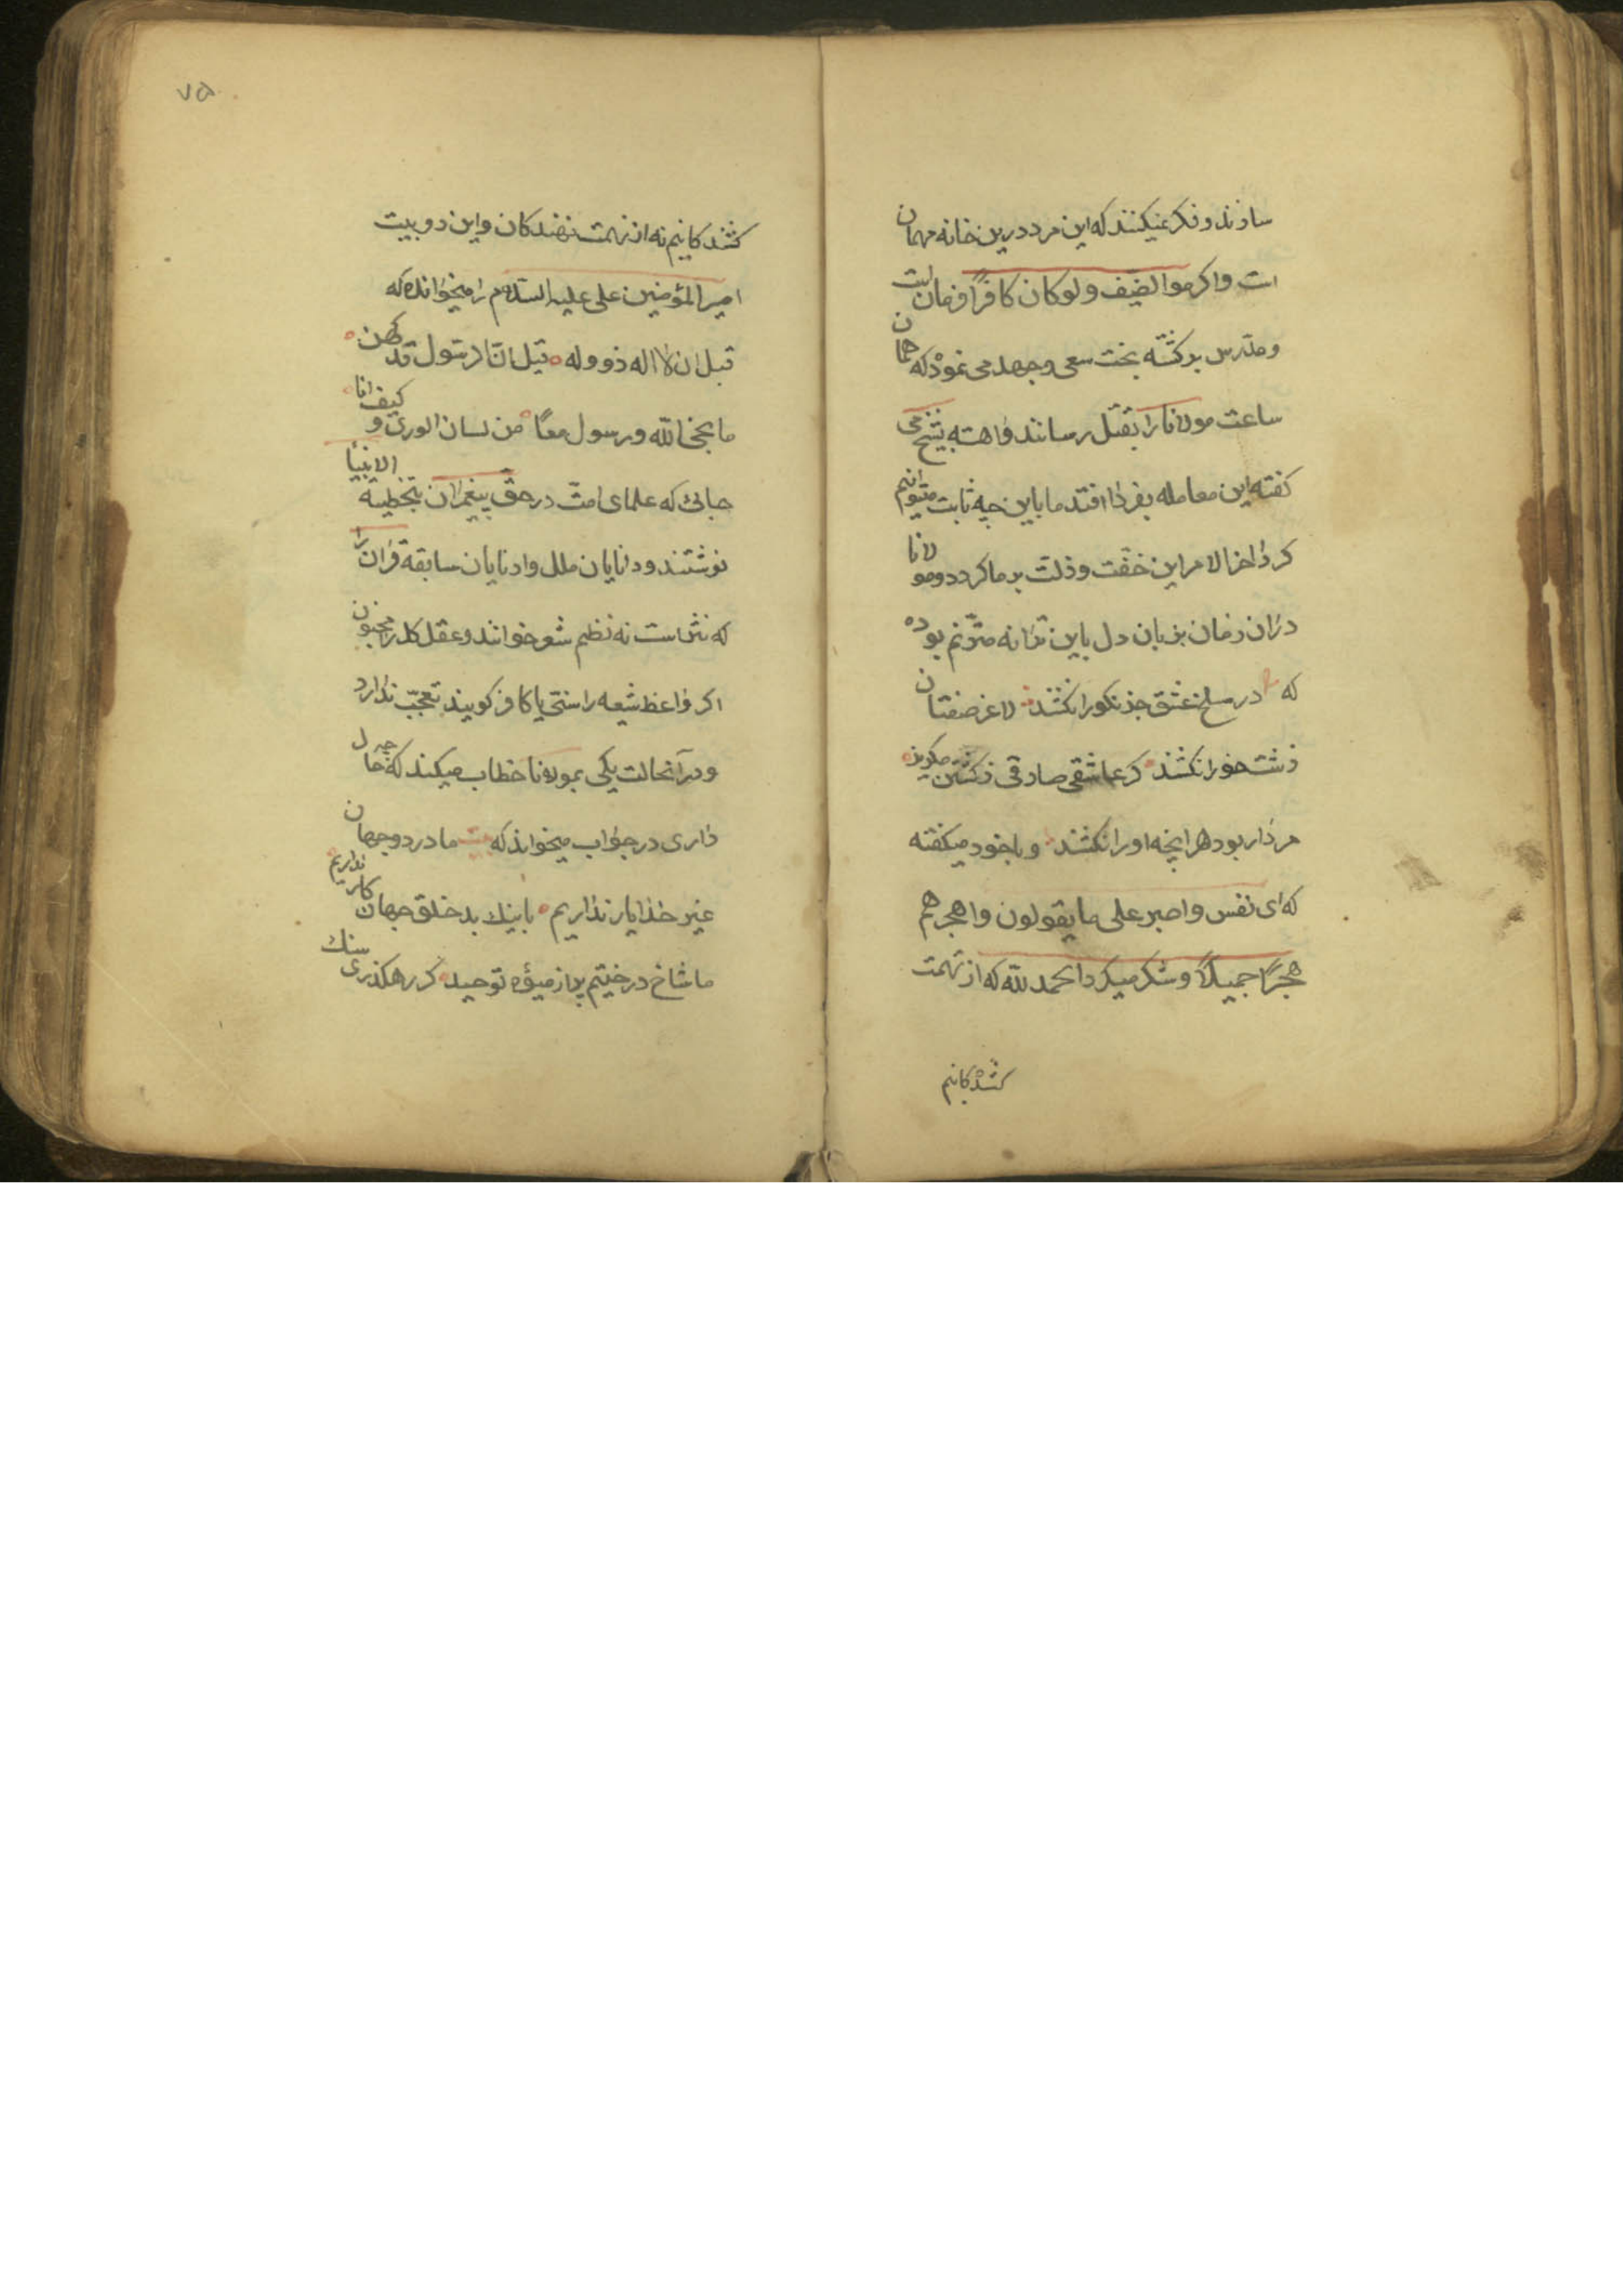 سازند و فکر نمیکنند که این مرد درین خانه مهمان
است و اکرموا الضیف ولو کان کافراً فرمان است
و مدرس برکشته بخت سعی و جهد می نمود که همان
ساعت مولانا را بقتل رسانند و اهسته بشیخ می
کفته این معامله بفردا افتد ما باین چه ثابت میتوانیم
کرد اخر الامر این خفّت و ذلت بر ما کردد و مولانا
دران زمان بزبان دل باین ترانه مترنّم بوده
که در مسلخ عشق جز نکو را نکشند لاغر صفتان
زشت خو را نکشند کر عاشق صادقی ز کشتن مکریز
مردار بود هر انچه او را نکشند و باخود میکفته
که ای نفس و اصبر علی ما یقولون و اهجرهم
هجراً جمیلاً و شکر میکرد الحمد لله که از تهمت
کشندکانیم
۷۵
کشندکانیم نه از تهمت نهندکان و این دو بیت
امیر المؤمنین علی علیه السلام را میخوانده که
قیل ان الاله ذو ولد قیل ان الرسول قد کهن
ما نجی الله و رسول معاً من لسان الوری و کیف انا
جائی که علمای امّت در حق پیغمبران تخطیة الانبیا
نوشتند و دانایان ملل و ادیان سابقه قران را
که نثر است نه نظم شعر خوانند و عقل کل را مجنون
اکر واعظ شیعه را سنّی یا کافر کویند تعجّب ندارد
و در آنحالت یکی بمولانا خطاب میکند که چه حال
داری در جواب میخواند که بیت ما در دو جهان
غیر خدا یار نداریم با نیک و بد خلق جهان کار نداریم
ما شاخ درختیم پر از میوهٔ توحید کر رهکذری سنک